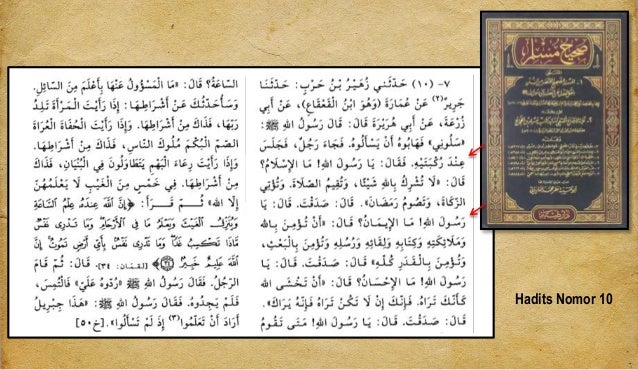 ٧- (١٠) حَدَّثَنِي زُهَيْرُ بْنُ حَرْبٍ: حَدَّثَنَا
جَرِيرٌ(٢) عَنْ عُمَارَةَ (وَهُوَ ابْنُ الْقَعْقَاعِ)، عَنْ أَبِي
زُرْعَةَ، عَنْ أَبِي هُرَيْرَةَ قَالَ: قَالَ رَسُولُ اللهِ ﷺ:
«سَلُونِي» فَهَابُوهُ أَنْ يَسْأَلُوهُ. فَجَاءَ رَجُلٌ، فَجَلَسَ
عِنْدَ رُكْبَتَيْهِ. فَقَالَ: يَا رَسُولَ اللهِ! مَا الْإِسْلَامُ؟
قَالَ: «لَا تُشْرِكُ بِاللهِ شَيْئًا، وَتُقِيمُ الصَّلَاةَ، وَتُؤْتِي
الزَّكَاةَ، وَتَصُومُ رَمَضَانَ». قَالَ: صَدَقْتَ. قَالَ: يَا
رَسُولَ اللهِ! مَا الْإِيمَانُ؟ قَالَ: «أَنْ تُؤْمِنَ بِاللهِ
وَمَلَائِكَتِهِ وَكِتَابِهِ وَلِقَائِهِ وَرُسُلِهِ وَتُؤْمِنَ بِالْبَعْثِ،
وَتُؤْمِنَ بِالْقَدَرِ كُلِّهِ» قَالَ: صَدَقْتَ. قَالَ: يَا
رَسُولَ اللهِ! مَا الْإِحْسَانُ؟ قَالَ: «أَنْ تَخْشَى اللهَ
كَأَنَّكَ تَرَاهُ. فَإِنَّكَ إِنْ لَا تَكُنْ تَرَاهُ فَإِنَّهُ يَرَاكَ».
قَالَ: صَدَقْتَ. قَالَ: يَا رَسُولَ اللهِ! مَتَى تَقُومُ
السَّاعَةُ؟ قَالَ: «مَا الْمَسْؤُولُ عَنْهَا بِأَعْلَمَ مِنَ السَّائِلِ.
وَسَأُحَدِّثُكَ عَنْ أَشْرَاطِهَا: إِذَا رَأَيْتَ الْمَرْأَةَ تَلِدُ
رَبَّهَا، فَذَاكَ مِنْ أَشْرَاطِهَا. وَإِذَا رَأَيْتَ الْحُفَاةَ الْعُرَاةَ
الصُّمَّ الْبُكْمَ مُلُوكَ النَّاسِ، فَذَاكَ مِنْ أَشْرَاطِهَا.
وَإِذَا رَأَيْتَ رِعَاءَ الْبَهْمِ يَتَطَاوَلُونَ فِي الْبُنْيَانِ، فَذَاكَ
مِنْ أَشْرَاطِهَا. فِي خَمْسٍ مِنَ الْغَيْبِ لَا يَعْلَمُهُنَّ
إِلَّا اللهُ» ثُمَّ قَرَأَ: ﴿إِنَّ اللَّهَ عِندَهُ عِلْمُ السَّاعَةِ
وَيُنَزِّلُ الْغَيْثَ وَيَعْلَمُ مَا فِي الْأَرْحَامِ وَمَا تَدْرِي نَفْسٌ
مَّاذَا تَكْسِبُ غَدًا وَمَا تَدْرِي نَفْسٌ بِأَيِّ أَرْضٍ تَمُوتُ إِنَّ
اللَّهَ عَلِيمٌ خَبِيرٌ﴾ [لقمان: ٣٤]. قَالَ: ثُمَّ قَامَ
الرَّجُلُ. فَقَالَ رَسُولُ اللهِ ﷺ: «رُدُّوهُ عَلَيَّ» فَالْتُمِسَ،
فَلَمْ يَجِدُوهُ. فَقَالَ رَسُولُ اللهِ ﷺ: «هَذَا جِبْرِيلُ
أَرَادَ أَنْ تَعَلَّمُوا(٣) إِذْ لَمْ تَسْأَلُوا». [خ٥٠]
صحيح مسلم
Hadits Nomor 10